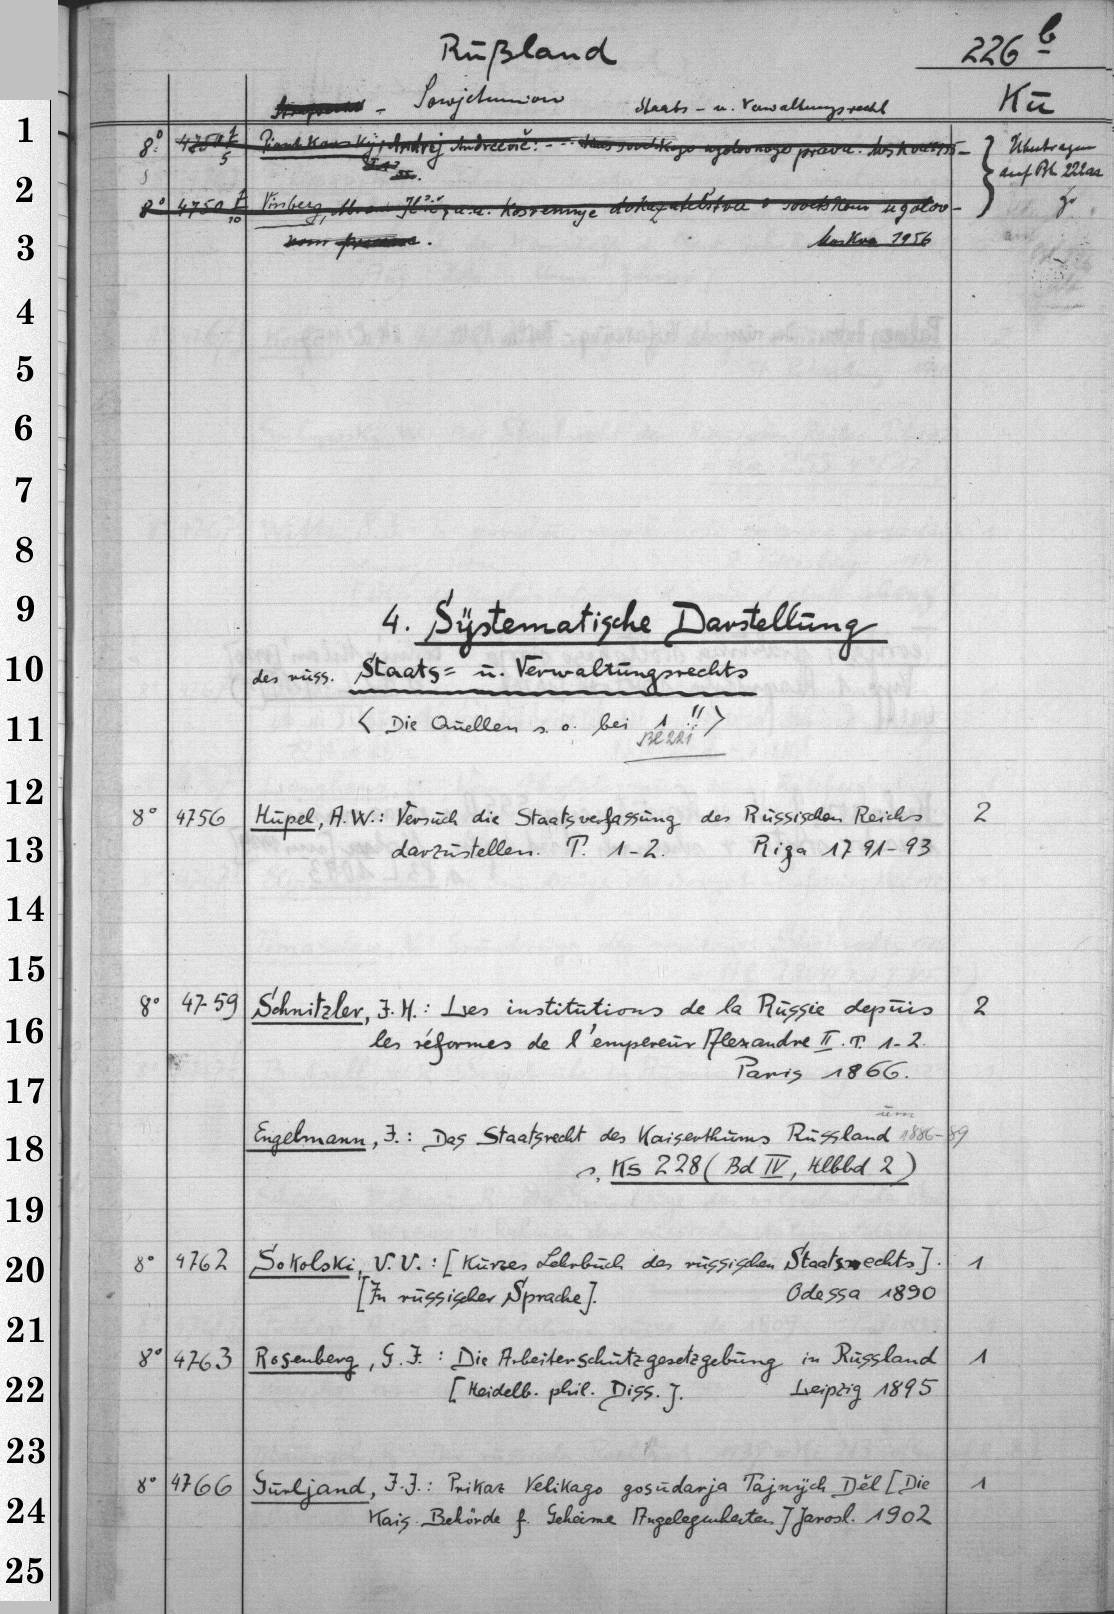 Rußland
226 b
Sowjetunion Staats- u. Verwaltungsrecht
Kü
8° Piontkovskij, Andrej Andreevič: Kurs sovetskogo ugolovnogo prava. Moskva 1955-
Übertragen
auf Bl. 222aa
8° 4750 Vinberg, u.a. Kosvennye dokazatelstva v sovetskom ugolov-
nom processe. Moskva 1956
4. Systematische Darstellung
des russ. Staats= u. Verwaltungsrechts
< Die Quellen s. o. bei 1 !! >
Bl 221
8° 4756 Hupel, A.W.: Versuch die Staatsverfassung des Russischen Reichs 2
darzustellen. T. 1-2. Riga 1791-93
8° 4759 Schnitzler, J. H.: Les institutions de la Russie depuis 2
les réformes de l'empereur Alexandre II. T. 1-2.
Paris 1866.
um
Engelmann, J.: Das Staatsrecht des Kaiserthums Russland 1886-89
s. Ks 228 (Bd IV, Hlbbd 2)
8° 4762 Sokolski, V. V.: [Kurzes Lehrbuch des russischen Staatsrechts]. 1
[In russischer Sprache]. Odessa 1890
8° 4763 Rosenberg, G. J.: Die Arbeiterschutzgesetzgebung in Russland 1
[Heidelb. phil. Diss.]. Leipzig 1895
8° 4766 Gurljand, J. J.: Prikaz Velikago gosudarja Tajnych Děl [Die 1
Kais. Behörde f. Geheime Angelegenheiten] Jarosl. 1902
1
2
3
4
5
6
7
8
9
10
11
12
13
14
15
16
17
18
19
20
21
22
23
24
25